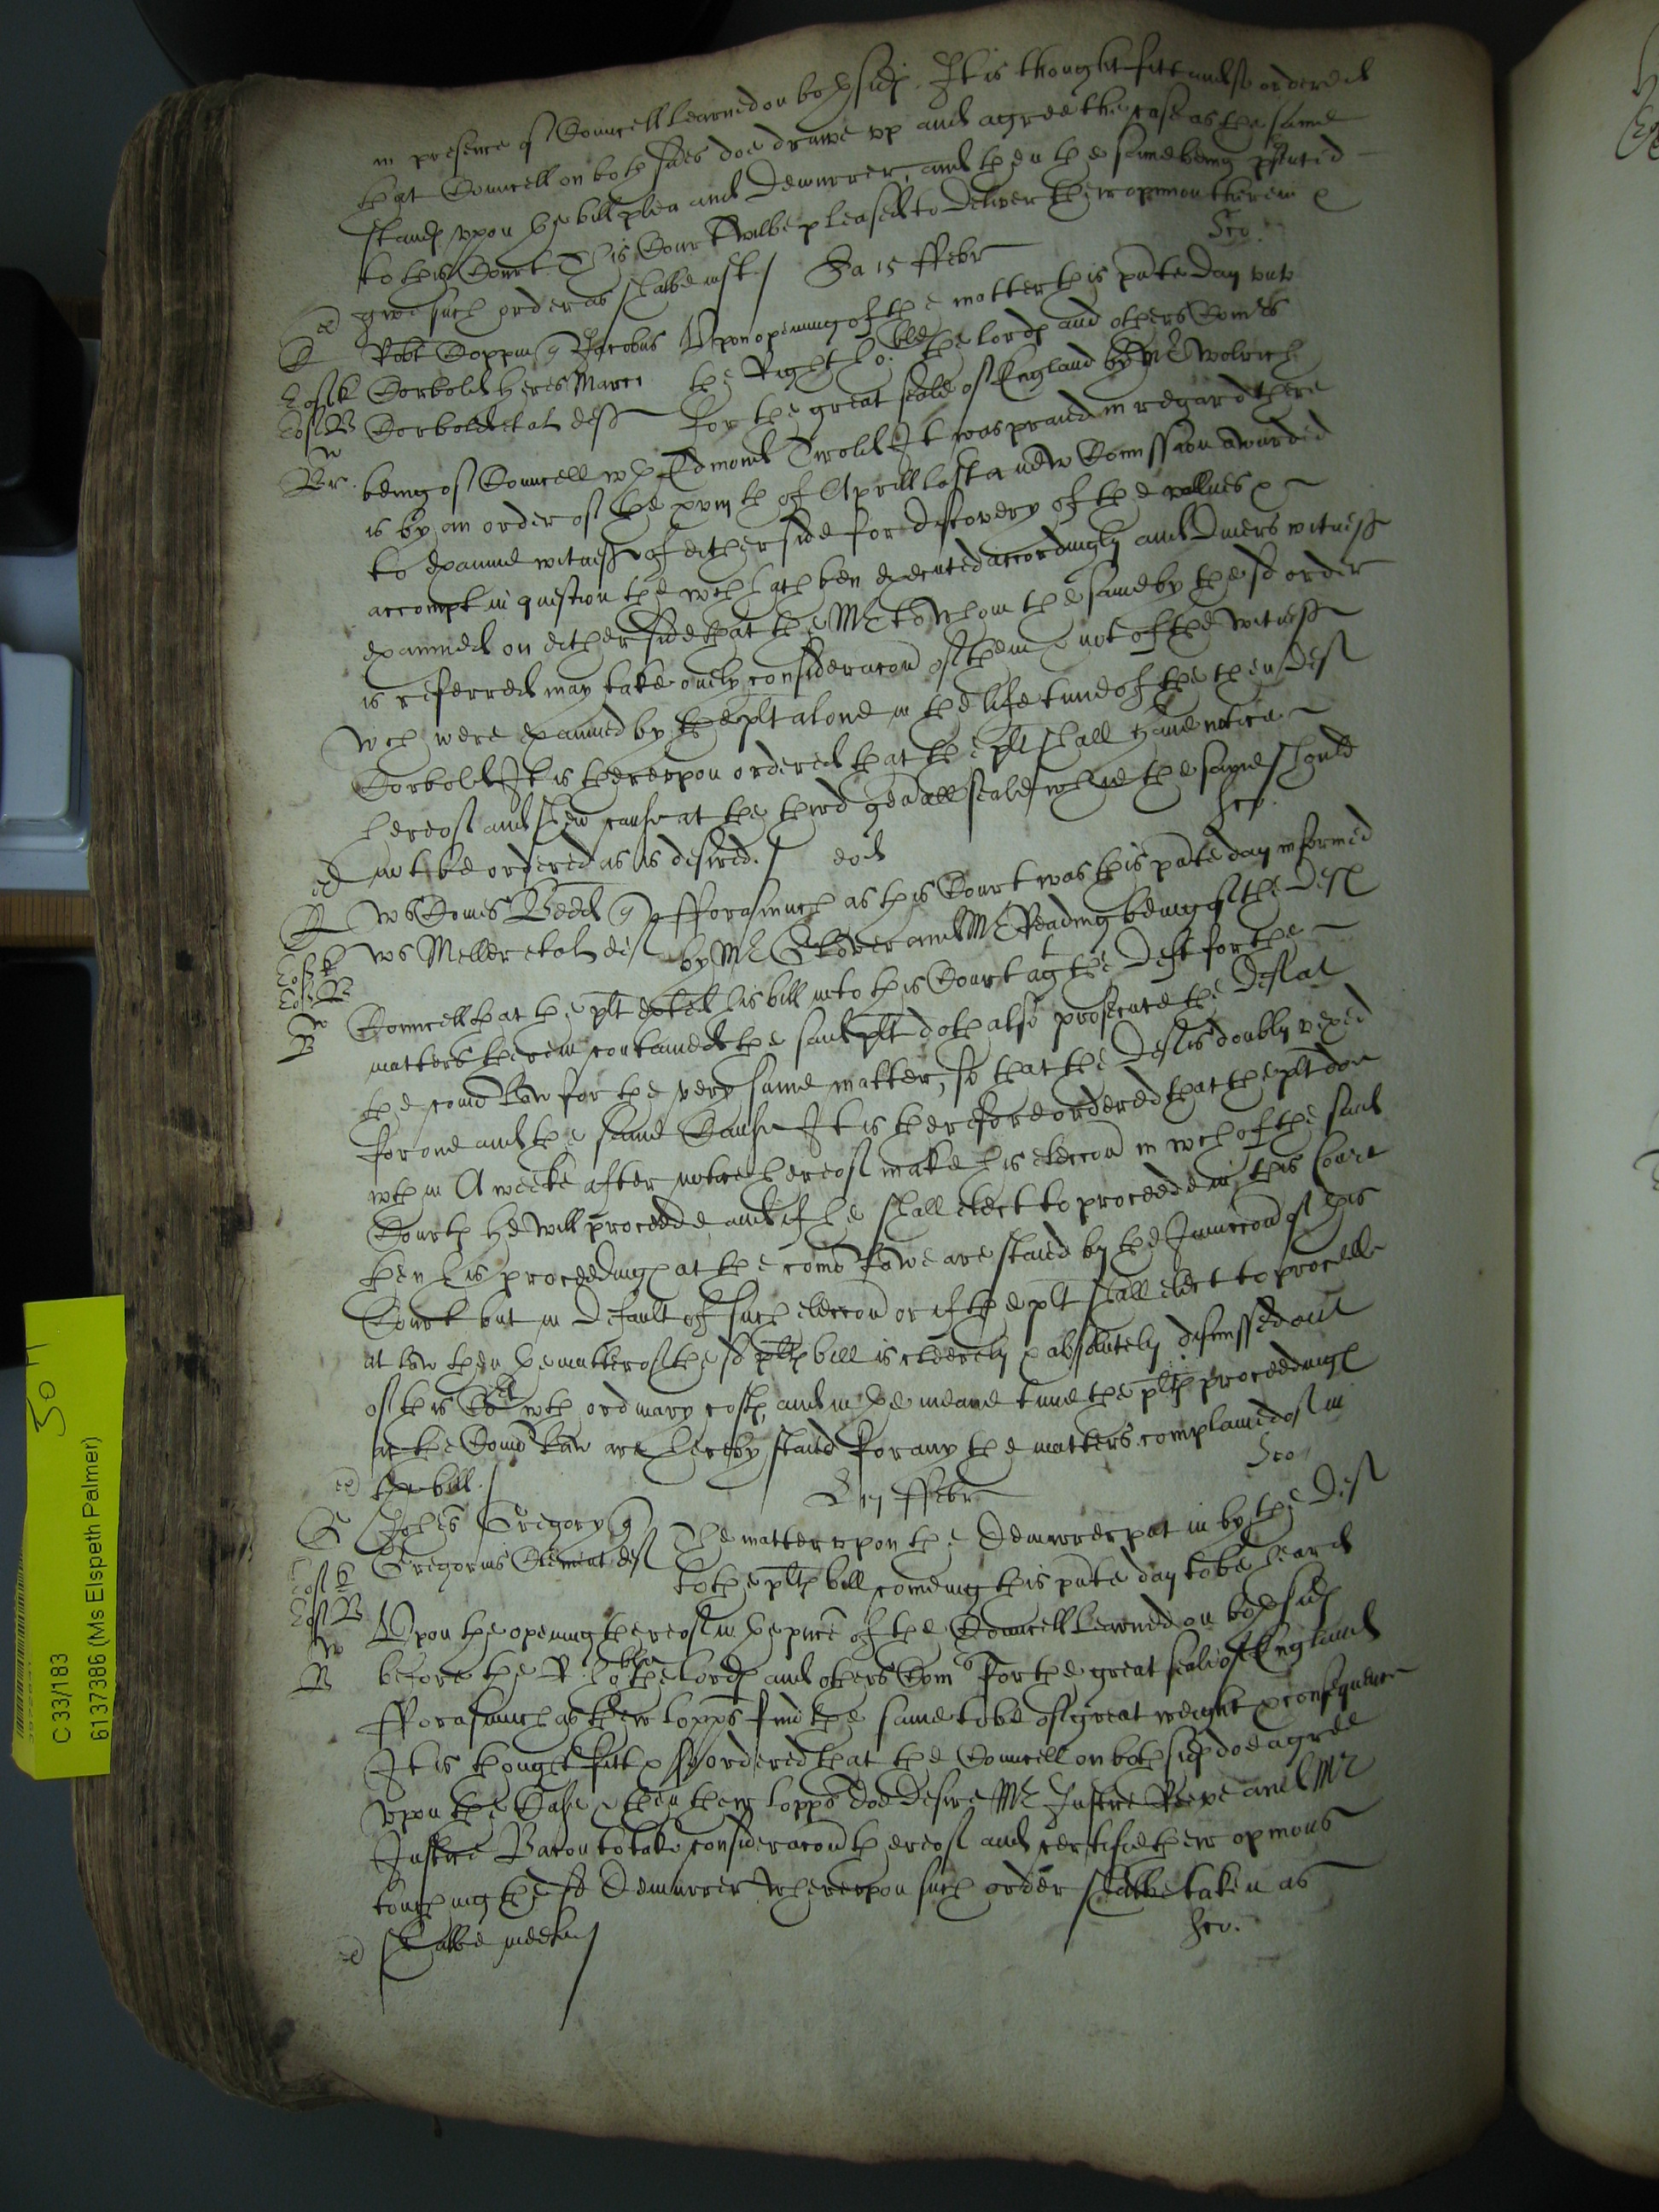 in presence of Councell learned on both sides. It is thought fitt and so ordered
that Councell on both sides doe drawe vp and agree the case as the same
stands vpon the bill plea and Demurrer, and then the same being pñted
to this Court This Court wilbe pleased to deliver their opinion therein &
give such order as shalbe iust /
Sa 15 ffebr
Robt Coppin q Jacobus
Corbold heres Marci
Corbold et al deft
Vpon opening of the matter this pñte day vnto
the Right ho:ble the lords and others Comrs
for the great seale of England by Mr Wolrich
being of Councell wth Edmond Twold It was praied in regard there
is by an order of the xviijth of Aprill last a new Comission awarded
to examine witness of either side for discovery of the values &
accompt in question the wch hath ben executed accordingly and divers witness
examined on either side that the Mr to whom the same by the sd order
is referred may take onely consideracon of them & not of the witness
wch were examined by the plt alone in the life time of the then deft
Corbold It is therevpon ordered that the plt shall have notice
hereof and shew cause at the third genall seale why the same should
not be ordered as is desired. /
eod
Ws Comes Bedd q
Ws Meller et al deft
fforasmuch as this Court was this pñte day informed
by Mr Glover and Mr Reading being of the defts
Councell that the plt exhted his bill into this Court agt the deft for the
matters therein contained the said plt doth also prosecute the deft at
the comõ law for the very same matter, so that the deft is doubly vexed
for one and the same Cause It is therefore ordered that the plt doe
wthin A weeke after notice hereof make his eleccon in wch of the said
Courts he will proceede, and if he shall elect to proceede in this Court
then his proceedings at the comõ lawe are staied by the Iniuccon of this
Court but in default of such eleccon or if the plt shall elect to proceede
at law then the matter of the sd plts bill is cleerely & absolutely dismissed out
of this Crt wth ordinary costs, and in the meane time the plts proceedings
at the Comõ law are hereby staied for any the matters complained of in
the bill. /
17 ffebr
Johes Gregory q
Gregorius Clement deft
The matter vpon the Demurrer put in by the deft
to the plts bill coming this pñte day to be heard
Vpon the opening thereof in the pñce of the Councell learned on both sides
before the R. hoble the lords and others Comrs for the great seale of England
fforasmuch as their lopps find the same to be of great weight & consequence
It is thought fitt & so ordered that the Councell on both sides doe agree
vpon the Case & then their lopps doe desire Mr Justice Reeve and Mr
Justice Bacon to take consideracon thereof and certifie their opinions
touching the sd Demurrer Wherevpon such order shalbe taken as
shalbe meete /
C 33/183
6137386 (Ms Elspeth Palmer)